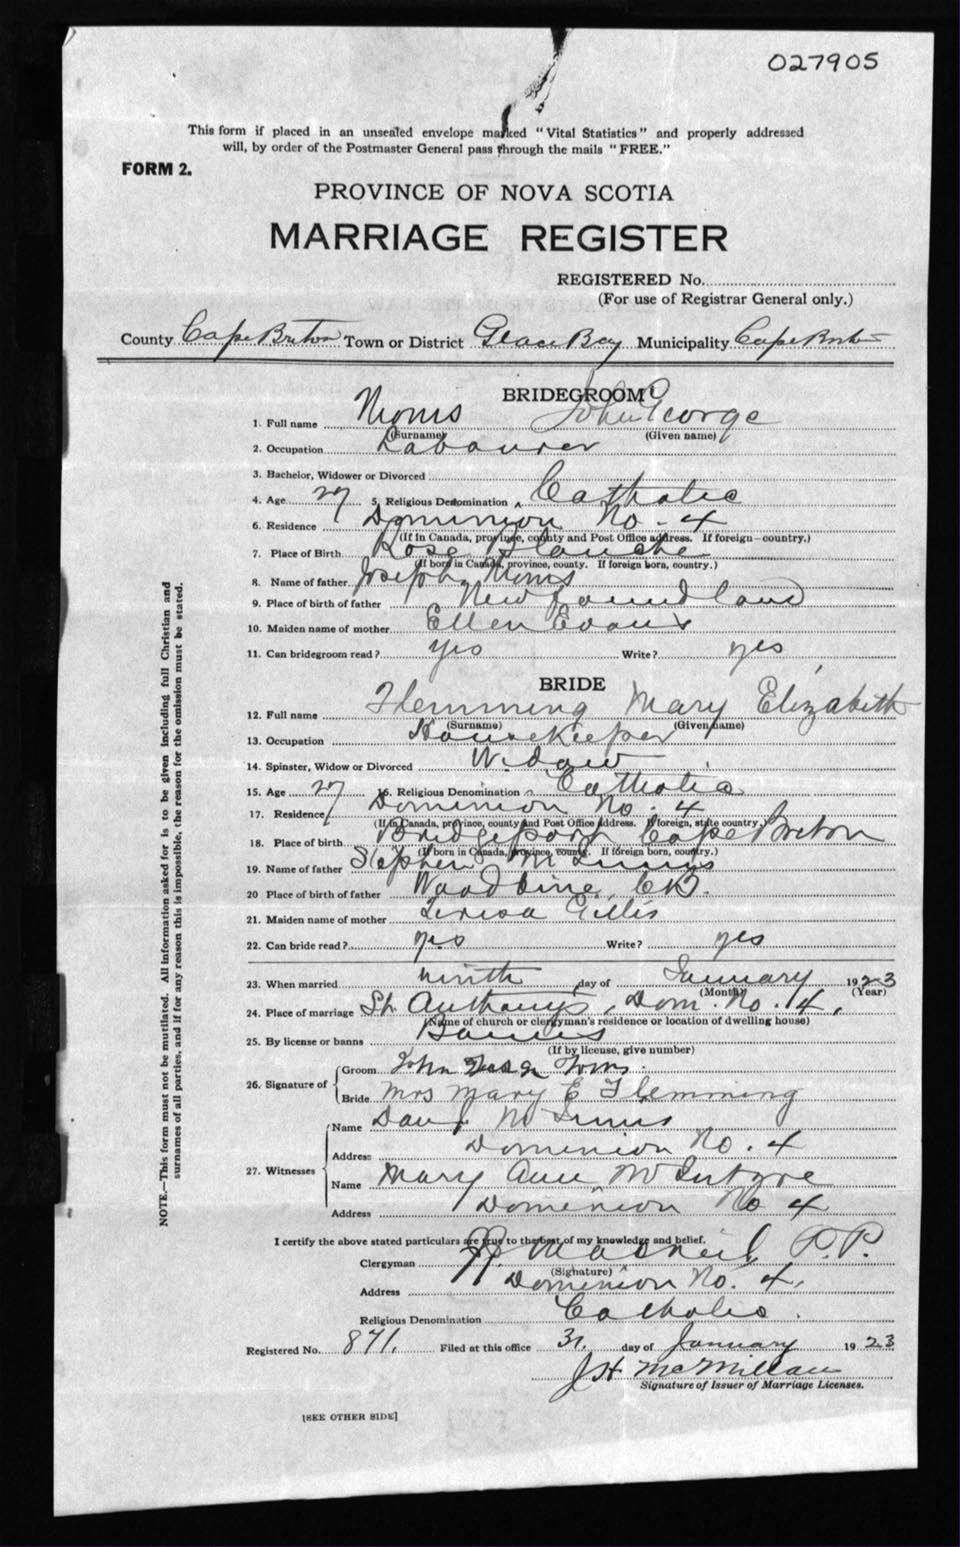 027905
This form if placed in an unsealed envelope marked "Vital Statistics" and properly addressed
will, by order of the Postmaster General pass through the mails "FREE."
FORM 2.
PROVINCE OF NOVA SCOTIA
MARRIAGE REGISTER
REGISTERED No.
(For use of Registrar General only.)
County Cape Breton Town or District Glace Bay Municipality Cape Breton
BRIDEGROOM
1. Full name John George
(Surname) (Given name)
2. Occupation Labourer
3. Bachelor, Widower or Divorced
4. Age 27 5. Religious Denomination Catholic
6. Residence Dominion No. 4
(If in Canada, province, county and Post Office address. If foreign—country.)
7. Place of Birth Rose Blanche
(If born in Canada, province, county. If foreign born, country.)
8. Name of father Joseph
9. Place of birth of father Newfoundland
10. Maiden name of mother Ellen Evans
11. Can bridegroom read? yes Write? yes
BRIDE
12. Full name Flemming Mary Elizabeth
(Surname) (Given name)
13. Occupation Housekeeper
14. Spinster, Widow or Divorced Widow
15. Age 27 16. Religious Denomination Catholic
17. Residence Dominion No. 4
(If in Canada, province, county and Post Office address. If foreign, state country.)
18. Place of birth Bridgeport Cape Breton
(If born in Canada, province, county. If foreign born, country.)
19. Name of father Stephen McInnis
20 Place of birth of father Woodbine, C.B.
21. Maiden name of mother Teresa Gillis
22. Can bride read? yes Write? yes
23. When married ninth day of January 1923
(Month) (Year)
24. Place of marriage St. Anthony's, Dom. No. 4,
(Name of church or clergyman's residence or location of dwelling house)
25. By license or banns Banns
(If by license, give number)
26. Signature of Groom John
Bride Mrs Mary E Flemming
27. Witnesses
Name McInnis
Address Dominion No. 4
Name Mary Ann McIntyre
Address Dominion No 4
I certify the above stated particulars are true to the best of my knowledge and belief.
Clergyman MacNeil P.P.
(Signature)
Address Dominion No. 4,
Religious Denomination Catholic.
Registered No. 871. Filed at this office 31, day of January 1923
J H McMillan
Signature of Issuer of Marriage Licenses.
[SEE OTHER SIDE]
NOTE.—This form must not be mutilated. All information asked for is to be given including full Christian and
surnames of all parties, and if for any reason this is impossible, the reason for the omission must be stated.